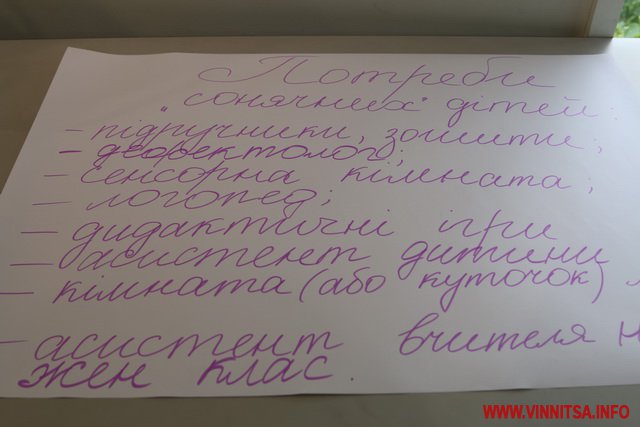 Потреби
"сонячних" дітей:
- підручники, зошити;
- дефектолог;
- сенсорна кімната;
- логопед;
- дидактичні ігри
- асистент дитини
- кімната (або куточок)
- асистент вчителя н
жен клас.
WWW.VINNITSA.INFO